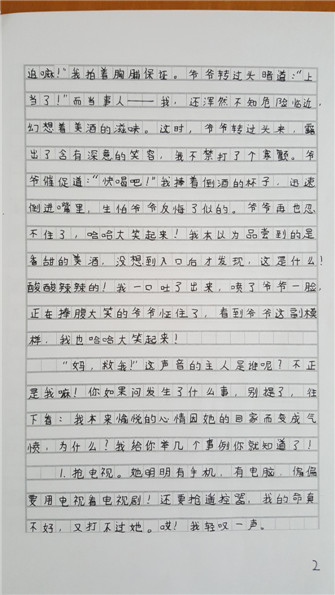 追嘛！”我拍着胸脯保证。爷爷转过头暗道：“上
当了！”而当事人——我，还浑然不知危险临近，
幻想着美酒的滋味。这时，爷爷转过头来，露
出了含有深意的笑容，我不禁打了个寒颤。爷
爷催促道：“快喝吧！”我捧着倒酒的杯子，迅速
倒进嘴里，生怕爷爷反悔了似的。爷爷再也忍
不住了，哈哈大笑起来！我本以为品尝到的是
香甜的美酒，没想到入口后才发现，这是什么！
酸酸辣辣的！我一口吐了出来，喷了爷爷一脸，
正在捧腹大笑的爷爷怔住了，看到爷爷这副模
样，我也哈哈大笑起来！
“妈，救我！”这声音的主人是谁呢？不正
是我嘛！你如果问发生了什么事，别提了，往
下看：我本来愉悦的心情因她的回家而变成气
愤，为什么？我给你举几个事例你就知道了！
1.抢电视。她明明有手机，有电脑，偏偏
要用电视看电视剧！还要抢遥控器，我的命真
不好，又打不过她。哎！我轻叹一声。
2